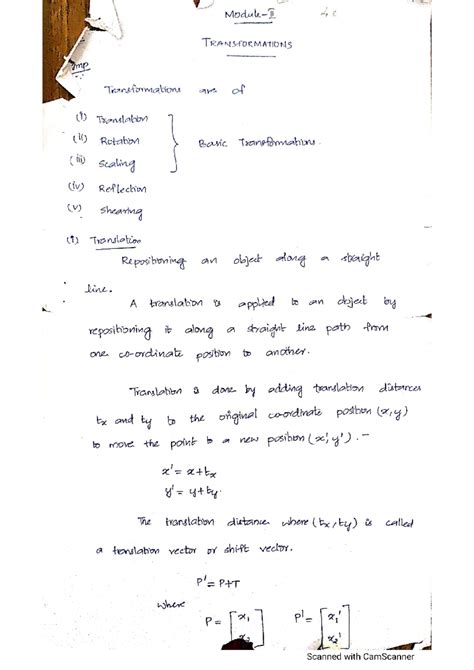 Module-II
TRANSFORMATIONS
Imp
Transformations are of
(i) Translation
(ii) Rotation
(iii) Scaling
Basic Transformations.
(iv) Reflection
(v) Shearing
(i) Translation
Repositioning an object along a straight
line.
A translation is applied to an object by
repositioning it along a straight line path from
one co-ordinate position to another.
Translation is done by adding translation distances
tx and ty to the original co-ordinate position (x,y)
to move the point to a new position (x',y').-
x' = x+tx
y' = y+ty.
The translation distance where (tx,ty) is called
a translation vector or shift vector.
P' = P+T
where
P = [x1 x2] P' = [x1' x2']
Scanned with CamScanner